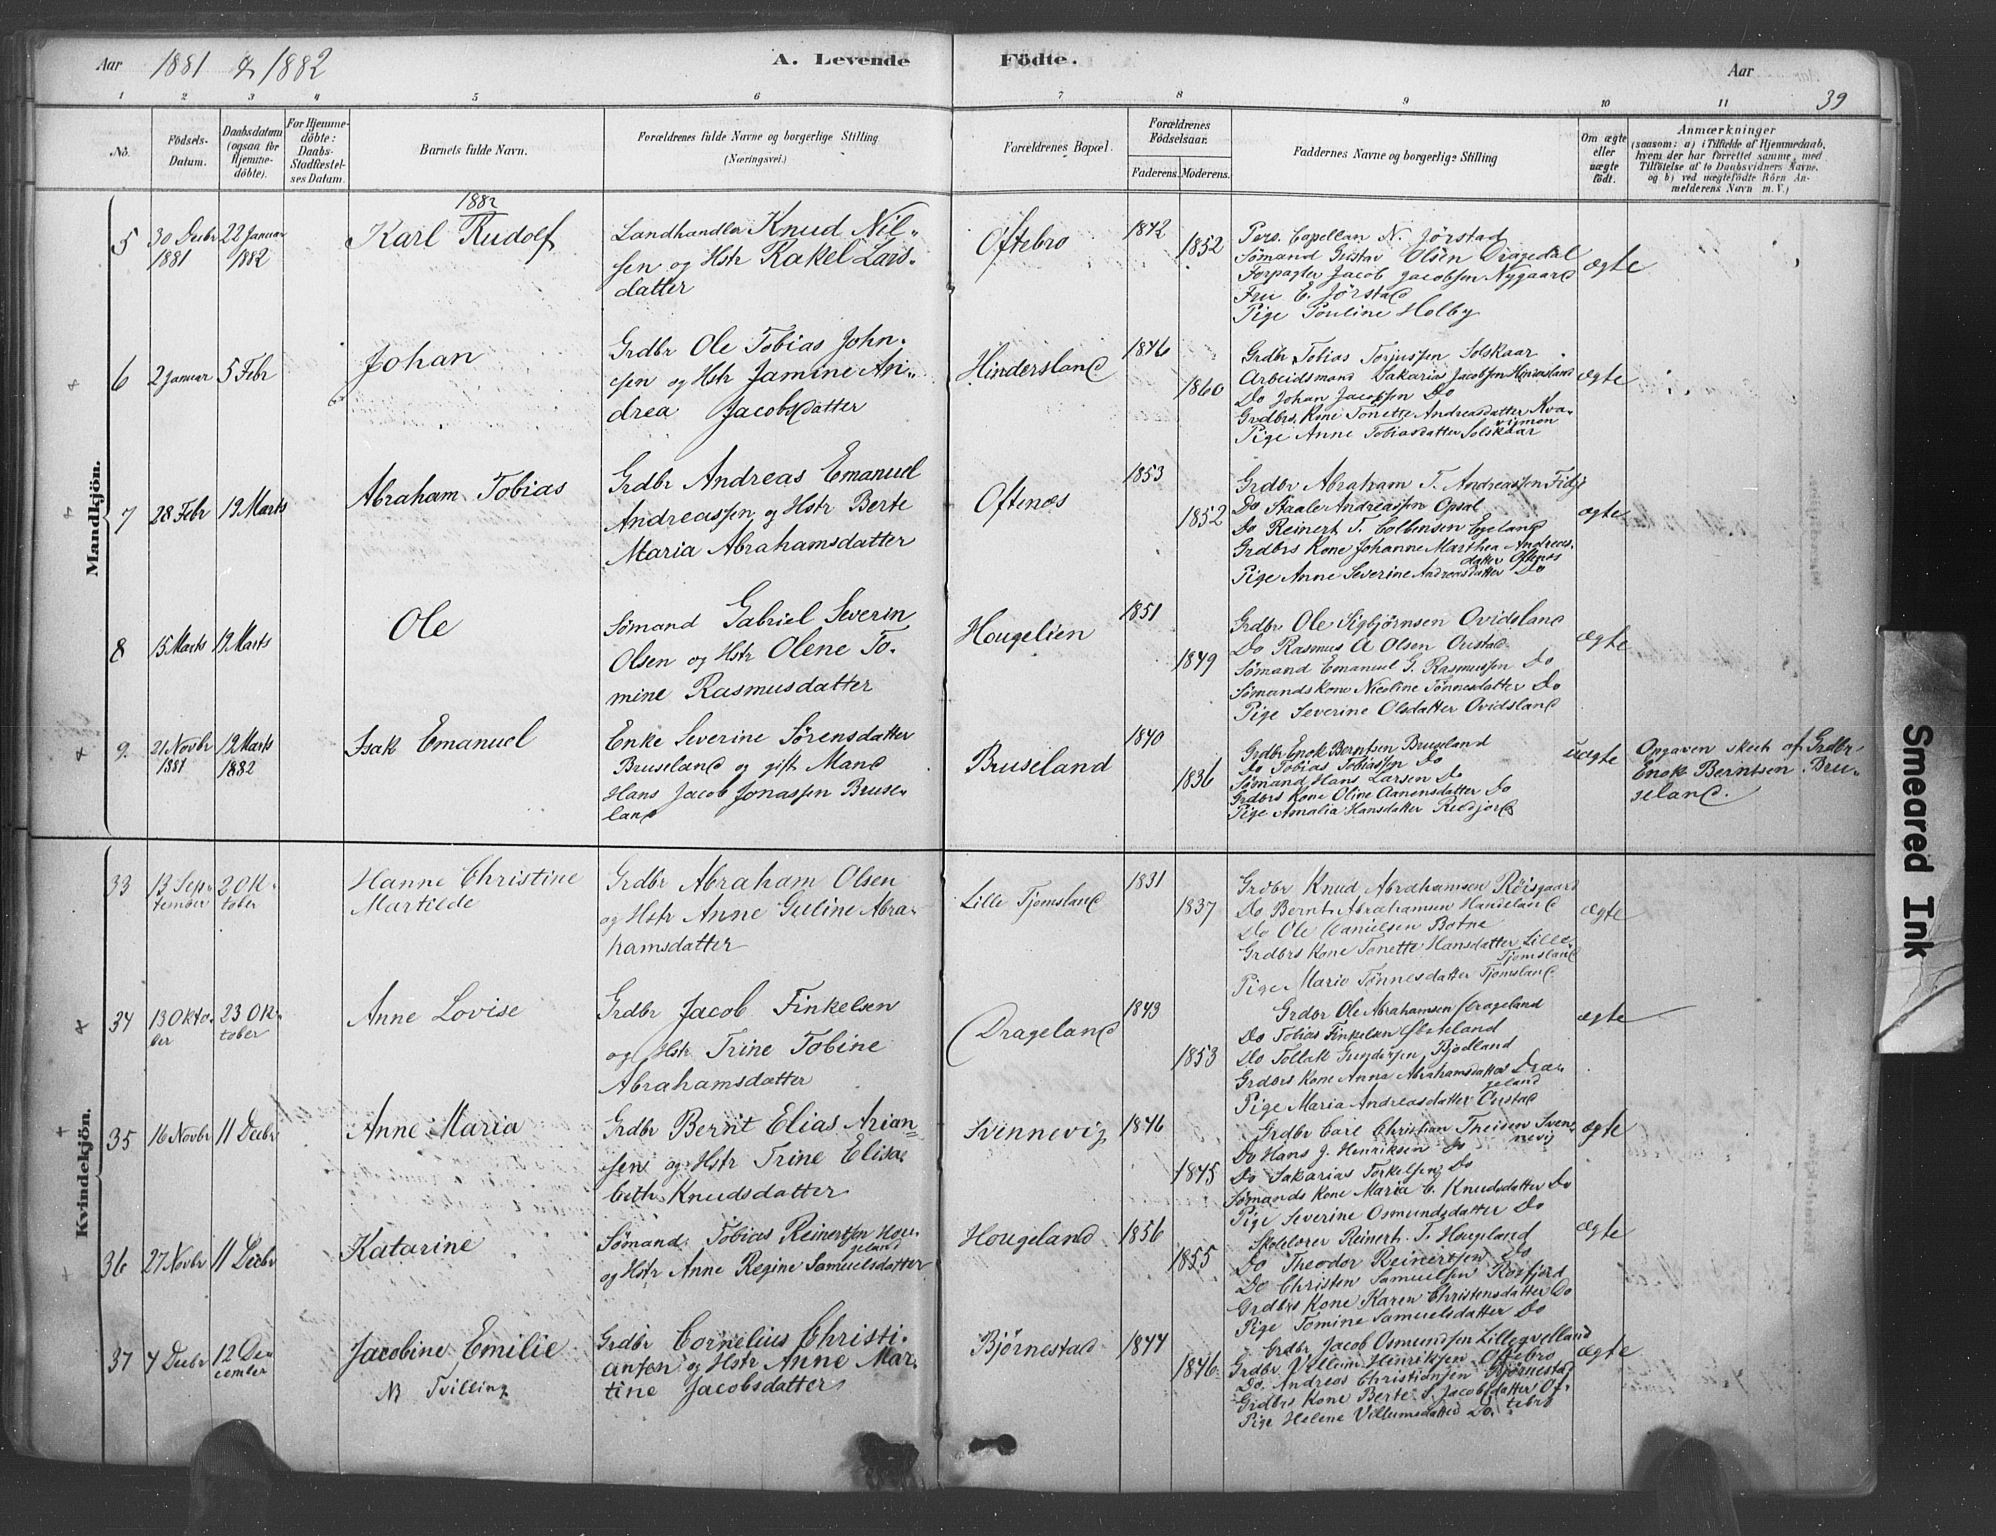 Aar 1881 & 1882 A. Levende Födte. Aar
39
1 2 3 4 5 6 7 8 9 10 11
No. Födsels-Datum. Daabsdatum (ogsaa for Hjemme-döbte). For Hjemme-döbte: Daabs-Stadfæstel-ses Datum. Barnets fulde Navn. Forældrenes fulde Navne og borgerlige Stilling (Næringsvei.) Forældrenes Bopæl. Forældrenes Födselsaar. Faderens. Moderens. Faddernes Navne og borgerlige Stilling Om ægte eller uægte födt. Anmærkninger (saasom: a) i Tilfælde af Hjemmedaab, hvem der har forrettet samme, med Tilföielse af to Daabsvidners Navne. og b) ved uægtefödte Börn An-melderens Navn m. V.)
Mandkjön.
1882
5 30 Decbr 1881 22 Januar 1882 Karl Rudolf
Landhandler Knud Nil-
sen og Hstr Rakel Lars-
datter
Oftebro 1842 1852
Pers. Capellan N. Jørstad
Sømand Gustav Olsen Dragedal
Forpagter Jacob Jacobsen Nygaard
Fru E. Jørstad
Pige Pouline Holby
ægte
6 2 Januar 5 Febr Johan
Grdbr Ole Tobias John-
sen og Hstr Jamine An-
drea Jacobsdatter
Hindersland 1846 1860
Grdbr Tobias Torjussen Solskaar
Arbeidsmand Sakarias Jacobsen Hindersland
Do Johan Jacobsen Do
Grdbrs. Kone Tonette Andreasdatter Kva-
vigmon
Pige Anne Tobiasdatter Solskaar
ægte
7 28 Febr 19 Marts Abraham Tobias
Grdbr Andreas Emanuel
Andreassen og Hstr Berte
Maria Abrahamsdatter
Oftenæs 1853 1852
Grdbr Abraham T. Andreassen Fidje
Do Staale Andreassen Opsal
Do Reinert T. Colbensen Egeland
Grdbrs Kone Johanne Marthea Andreas-
datter Oftenæs
Pige Anne Severine Andreasdatter Do
ægte
8 15 Marts 19 Marts Ole
Sømand Gabriel Severin
Olsen og Hstr Olene To-
mine Rasmusdatter
Hougelien 1851 1849
Grdbr Ole Sigbjørnsen Ovidsland
Do Rasmus A Olsen Ourstad
Sømand Emanuel G. Rasmussen Do
Sømands Kone Nicoline Tønnesdatter Do
Pige Severine Olsdatter Ovidsland
ægte
9 21 Novbr 1881 19 Marts 1882 Isak Emanuel
Enke Severine Sørensdatter
Bruseland og gift Mand
Hans Jacob Jonassen Bruse-
land
Bruseland 1840 1836
Grdbr Enok Berntsen Bruseland
Do Tobias Tobiassen Do
Sømand Hans Larsen Do
Grdbrs Kone Oline Aanensdatter Do
Pige Amalia Hansdatter
uægte
Opgaven skeet af Grdbr
Enok Berntsen Bru-
seland.
Kvindekjön.
33 13 September 2 Oktober Hanne Christine
Martilde
Grdbr Abraham Olsen
og Hstr Anne Guline Abra-
hamsdatter
Lille Tjomsland 1831 1837
Grdbr Knud Abrahamsen Røisgaard
Do Bernt Abrahamsen Handeland
Do Ole Danielsen Botne
Grdbrs Kone Tonette Hansdatter Lille
Tjomsland
Pige Marie Tønnesdatter Tjomsland
ægte
34 13 Oktober 23 Oktober Anne Lovise
Grdbr Jacob Finkelsen
og Hstr Trine Tobine
Abrahamsdatter
Drageland 1849 1853
Grdbr Ole Abrahamsen Drageland
Do Tobias Finkelsen
Do Tollak Gundersen Bjodland
Grdbrs Kone Anna Abrahamsdatter Dra-
geland
Pige Maria Andreasdatter Ourstad
ægte
35 16 Novbr 11 Decbr Anne Maria
Grdbr Bernt Elias Arian-
sen og Hstr Trine Elisa-
beth Knudsdatter
Svennevig 1846 1845
Grdbr Carl Christian Theisen Sven-
nevig
Do Hans J. Henriksen Do
Do Sakarias Torkelsen Do
Sømands Kone Maria C. Knudsdatter Do
Pige Severine Osmundsdatter Do
ægte
36 27 Novbr 11 Decbr Katarine
Sømand Tobias Reinertsen Hou-
geland
og Hstr Anne Regine Samuelsdatter
Hougeland 1856 1855
Skolelærer Reinert T. Hougeland
Do Theodor Reinertsen Do
Do Christen Samuelsen Rosfjord
Grdbrs Kone Karen Christensdatter Do
Pige Tomine Samuelsdatter Do
ægte
37 4 Decbr 12 December Jacobine Emilie
NB Tvilling
Grdbr Cornelius Christi-
ansen og Hstr Anne Mar-
tine Jacobsdatter
Bjørnestad 1844 1846
Grdbr Jacob Osmundsen Lilleqvelland
Grdbr Villum Henriksen Oftebro
Do. Andreas Christiansen Bjørnestad
Grdbrs Kone Berte S. Jacobsdatter Of-
tebro
Pige Helene Villumsdatter Do.
ægte
Smeared Ink